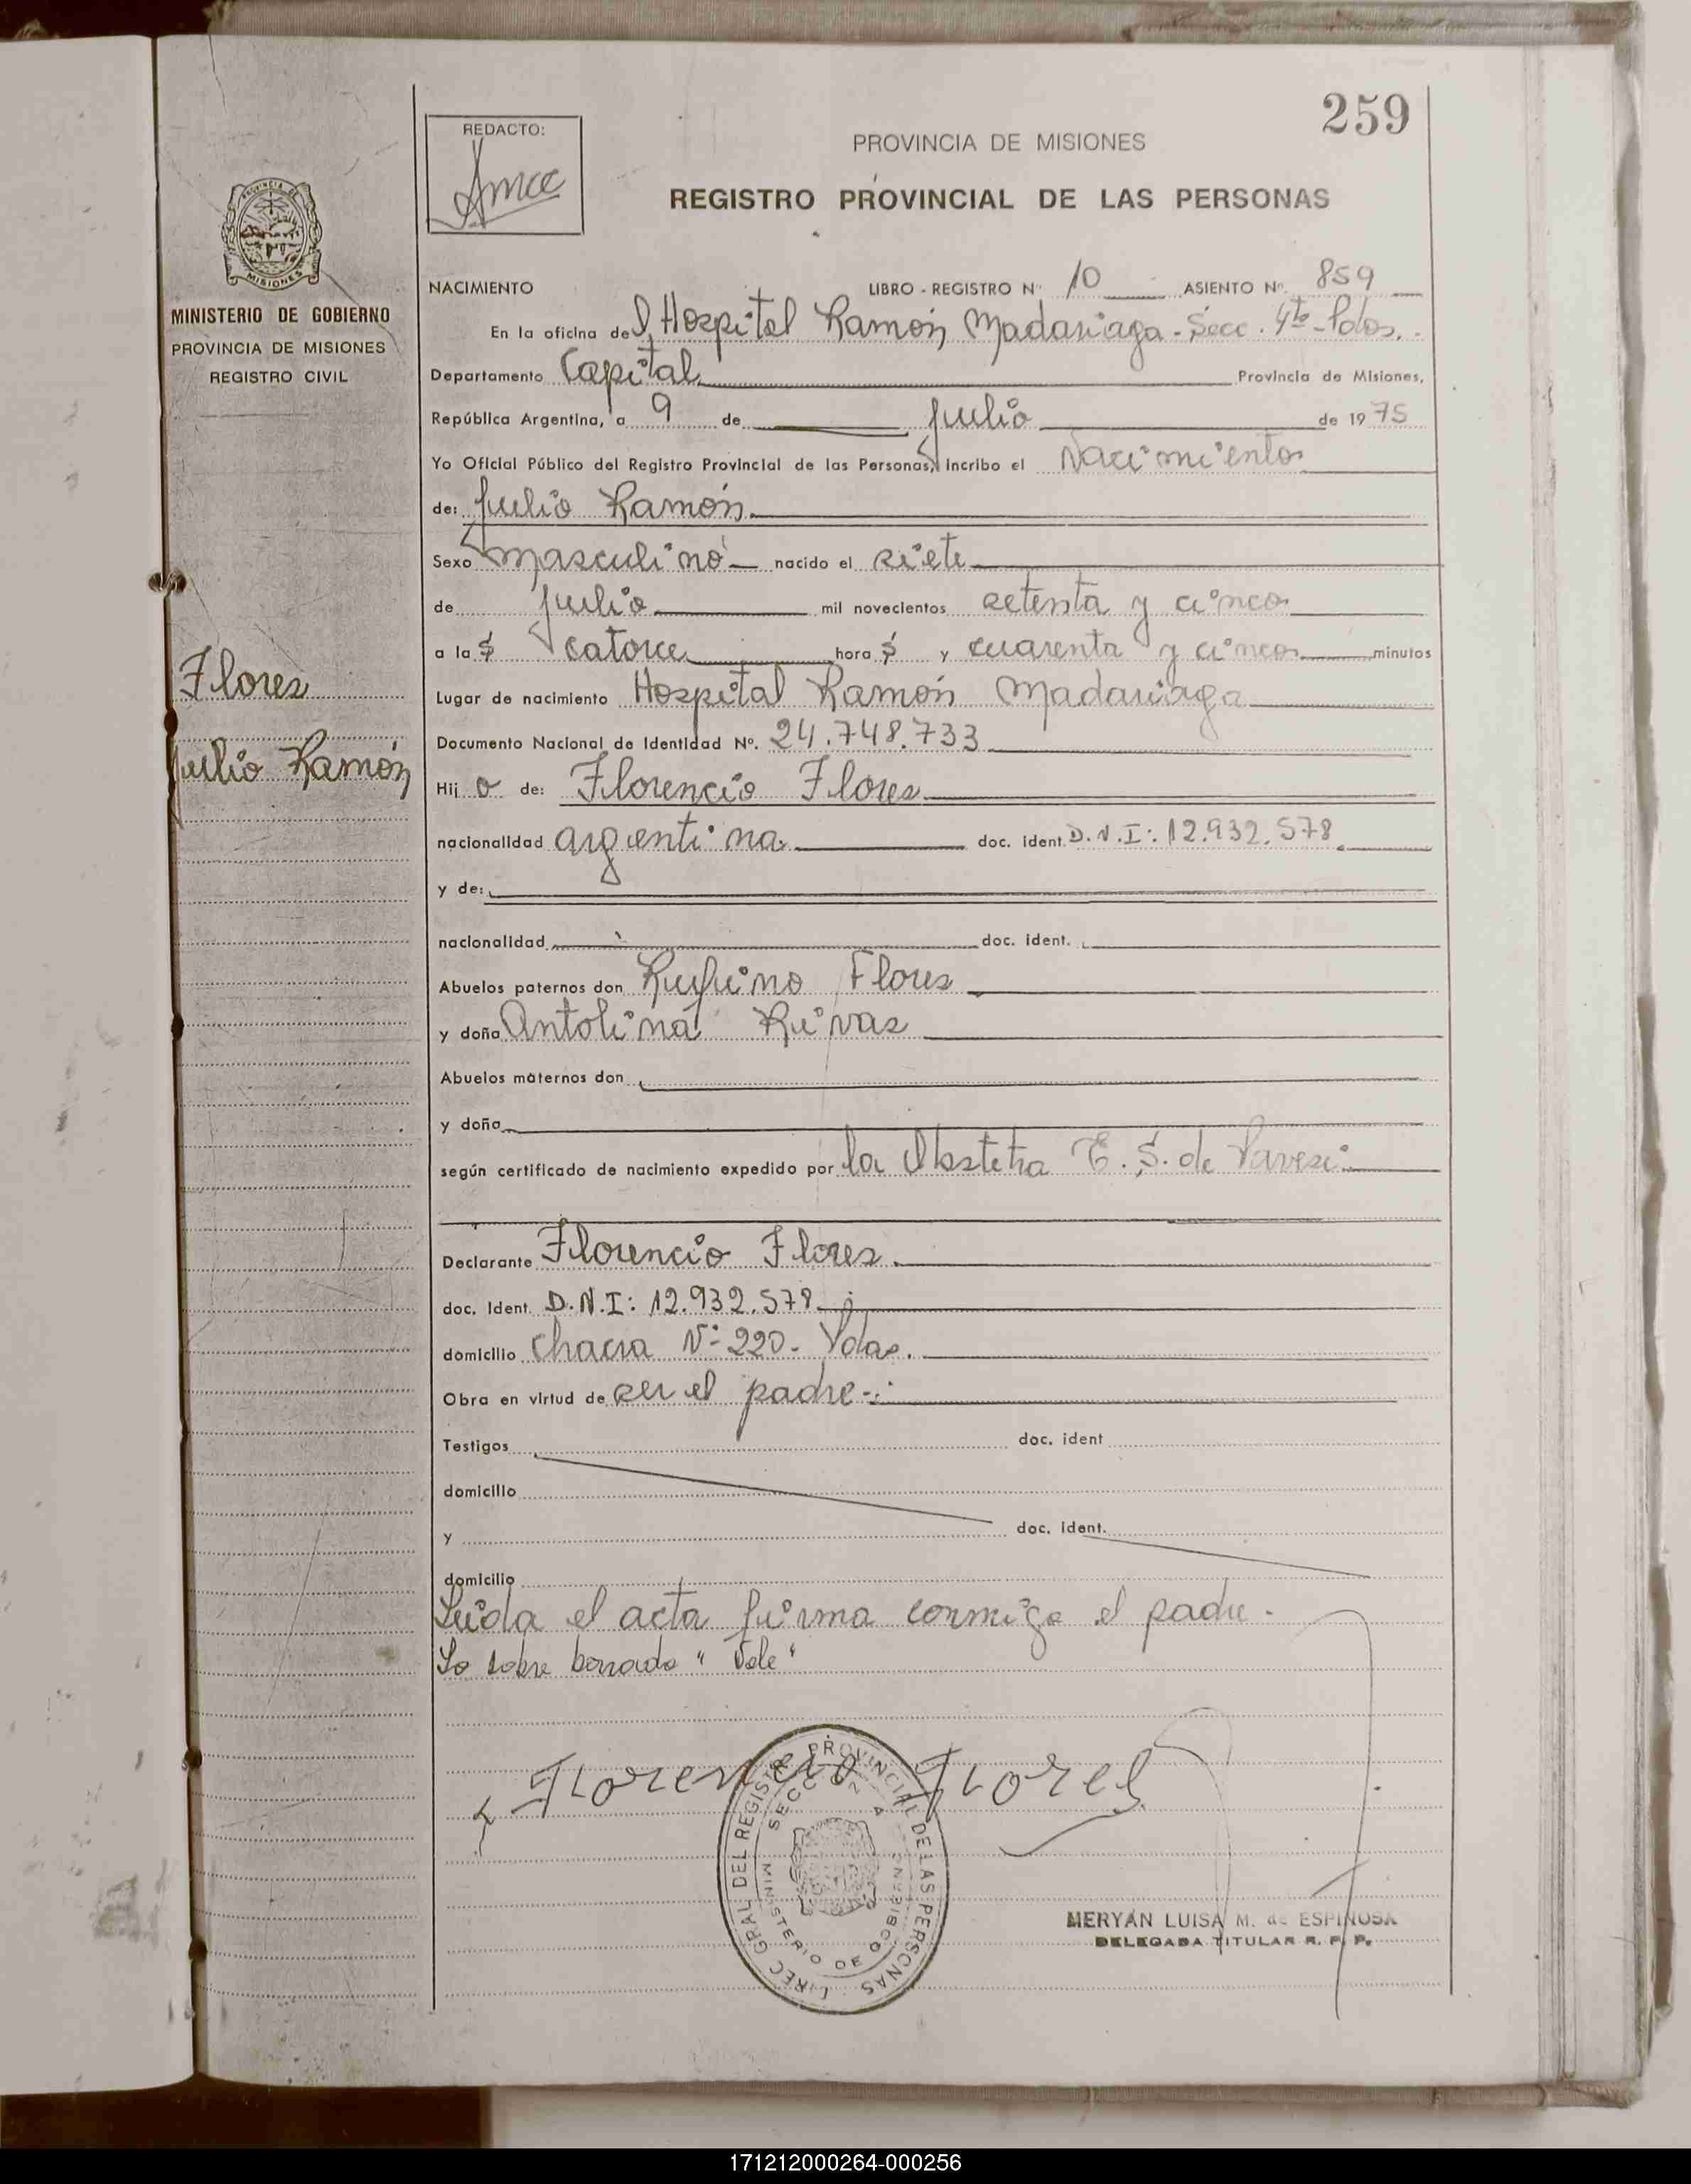 259
REDACTO:
PROVINCIA DE MISIONES
REGISTRO PROVINCIAL DE LAS PERSONAS
PROVINCIA DE
MISIONES
MINISTERIO DE GOBIERNO
PROVINCIA DE MISIONES
REGISTRO CIVIL
Flores
Julio Ramón
NACIMIENTO LIBRO - REGISTRO Nº 10 ASIENTO Nº 859
En la oficina del Hospital Ramón Madariaga - Secc. 4ta - Pdas.
Departamento Capital Provincia de Misiones,
República Argentina, a 9 de julio de 1975
Yo Oficial Público del Registro Provincial de las Personas, Incribo el Nacimiento
de: Julio Ramón
Sexo masculino nacido el siete
de julio mil novecientos setenta y cinco
a la s catorce hora s y cuarenta y cinco minutos
Lugar de nacimiento Hospital Ramón Madariaga
Documento Nacional de Identidad Nº. 24.748.733
Hij o de: Florencio Flores
nacionalidad argentina doc. ident. D.N.I: 12.932.578
y de:
nacionalidad doc. ident.
Abuelos paternos don Rufino Flores
y doña Antolina Rivas
Abuelos maternos don
y doña
según certificado de nacimiento expedido por la Obstetra E. S. de Pavesi
Declarante Florencio Flores
doc. Ident. D.N.I: 12.932.578
domicilio chacra Nº 220 - Pdas.
Obra en virtud de ser el padre
Testigos doc. ident
domicilio
y doc. ident.
domicilio
Leída el acta firma conmigo el padre.
Lo sobre borrado "Vale"
Florencio Flores
DIREC. GRAL. DEL REGISTRO PROVINCIAL DE LAS PERSONAS
SECCION 4
MINISTERIO DE GOBIERNO
MERYAN LUISA M. de ESPINOSA
DELEGADA TITULAR R. P. P.
171212000264-000256